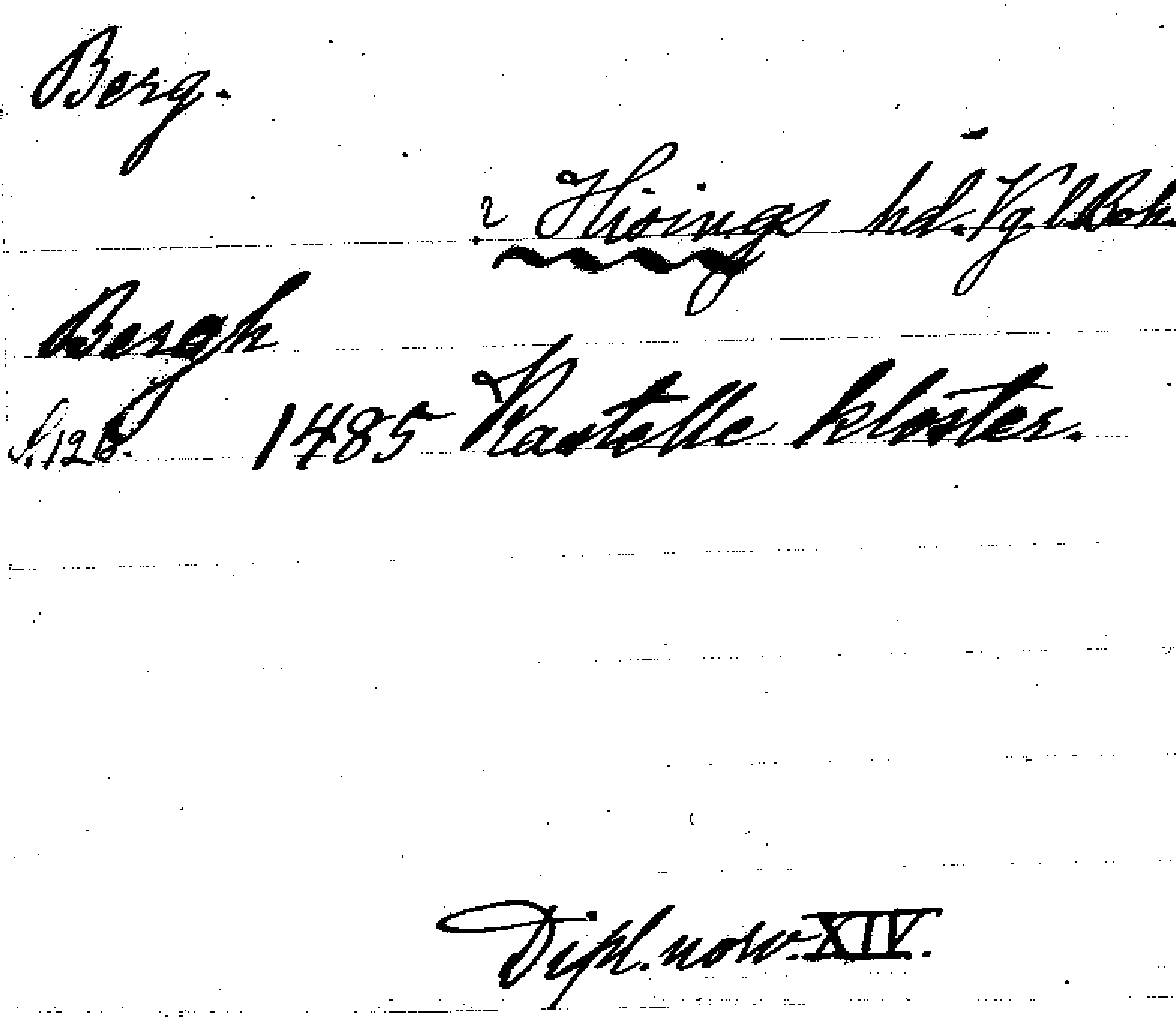 Berg.
? Hisings hd. Vgl. Boh.
Bergh
S. 126. 1485 Kastelle kloster.
Dipl. norv. XIV.